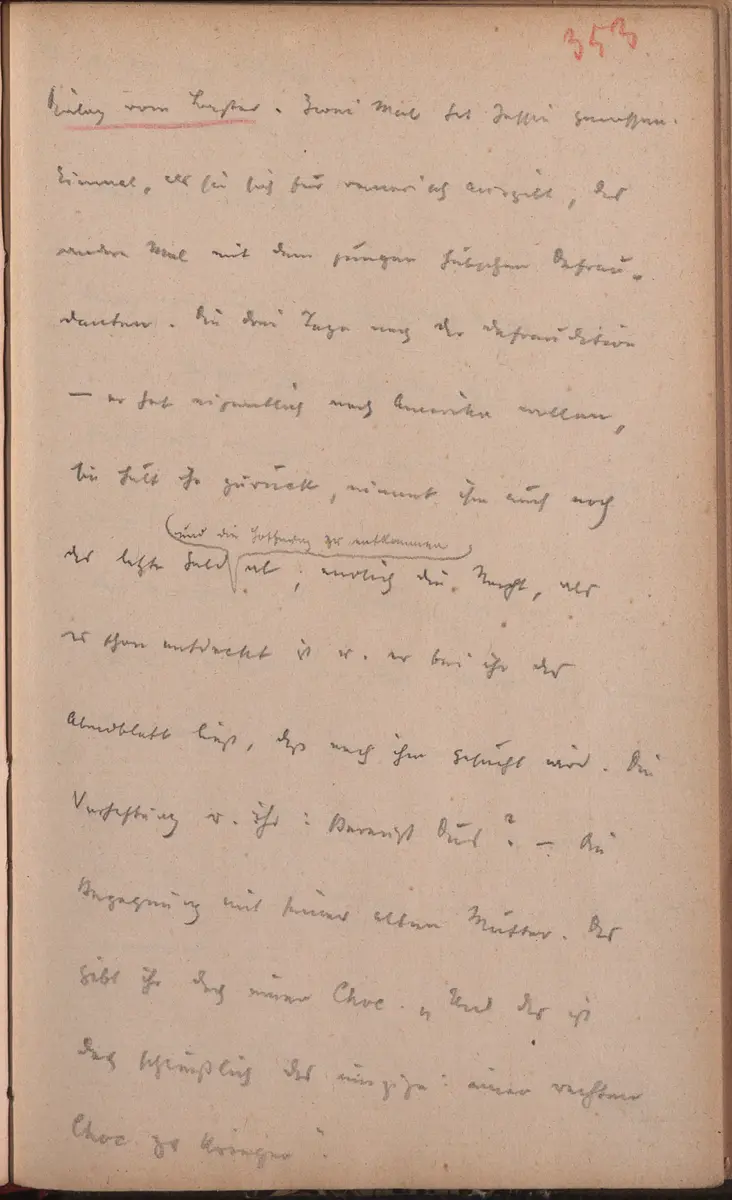 353
Dialog vom Laster. Zwei Mal hat sie genossen.
Einmal, als sie sich für venerisch ausgibt, das
andere Mal mit dem jungen hübschen Defrau-
danten. Die drei Tage nach der Defraudation
– er hat eigentlich nach Amerika wollen,
sie hält ihn zurück, nimmt ihm auch noch
(und die Hoffnung zu entkommen)
das letzte Geld ab; endlich die Nacht, als
es schon entdeckt ist u. er bei ihr das
Abendblatt liest, daß nach ihm gesucht wird. Die
Verhaftung u. ihr: Bereust Dus? – Die
Begegnung mit seiner alten Mutter. Das
gibt ihr doch einen Choc. „Und das ist
doch schließlich das einzige: einen rechten
Choc zu kriegen“.